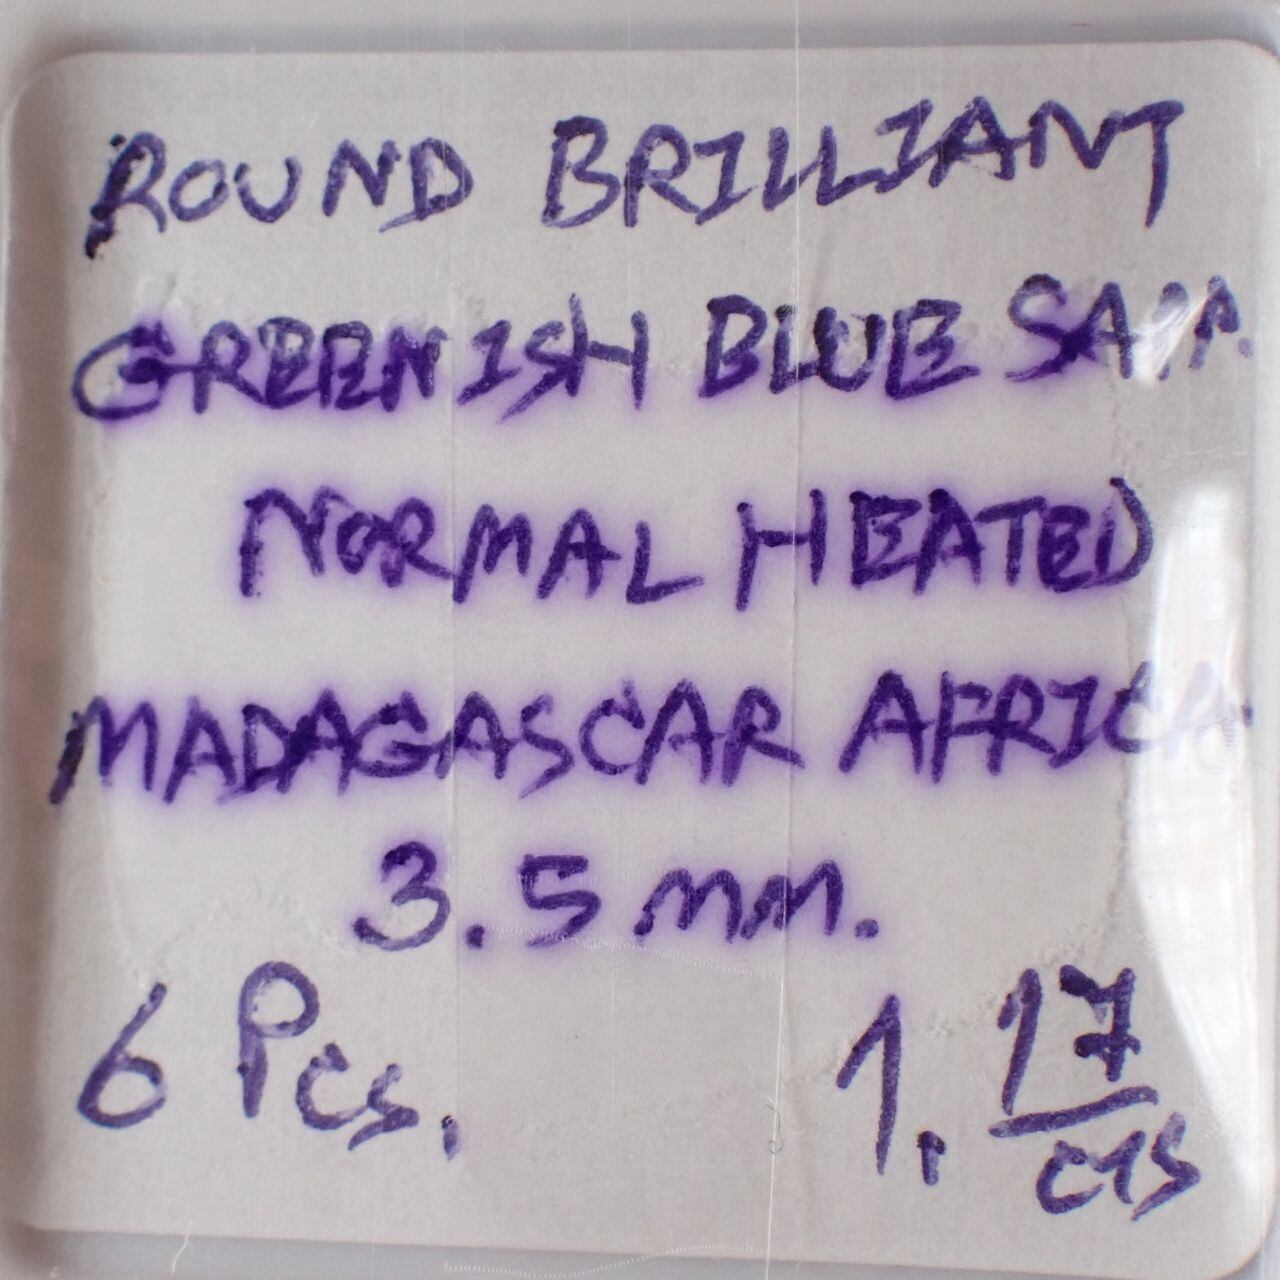 ROUND BRILLIANT
GREENISH BLUE SAPP.
NORMAL HEATED
MADAGASCAR AFRICA
3.5 mm.
6 Pcs. 1.17/cts